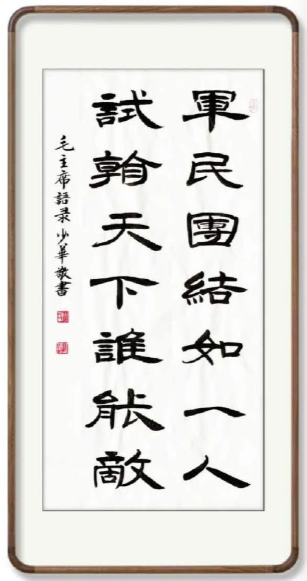 軍民團結如一人
試看天下誰能敵
毛主席語录少華敬書